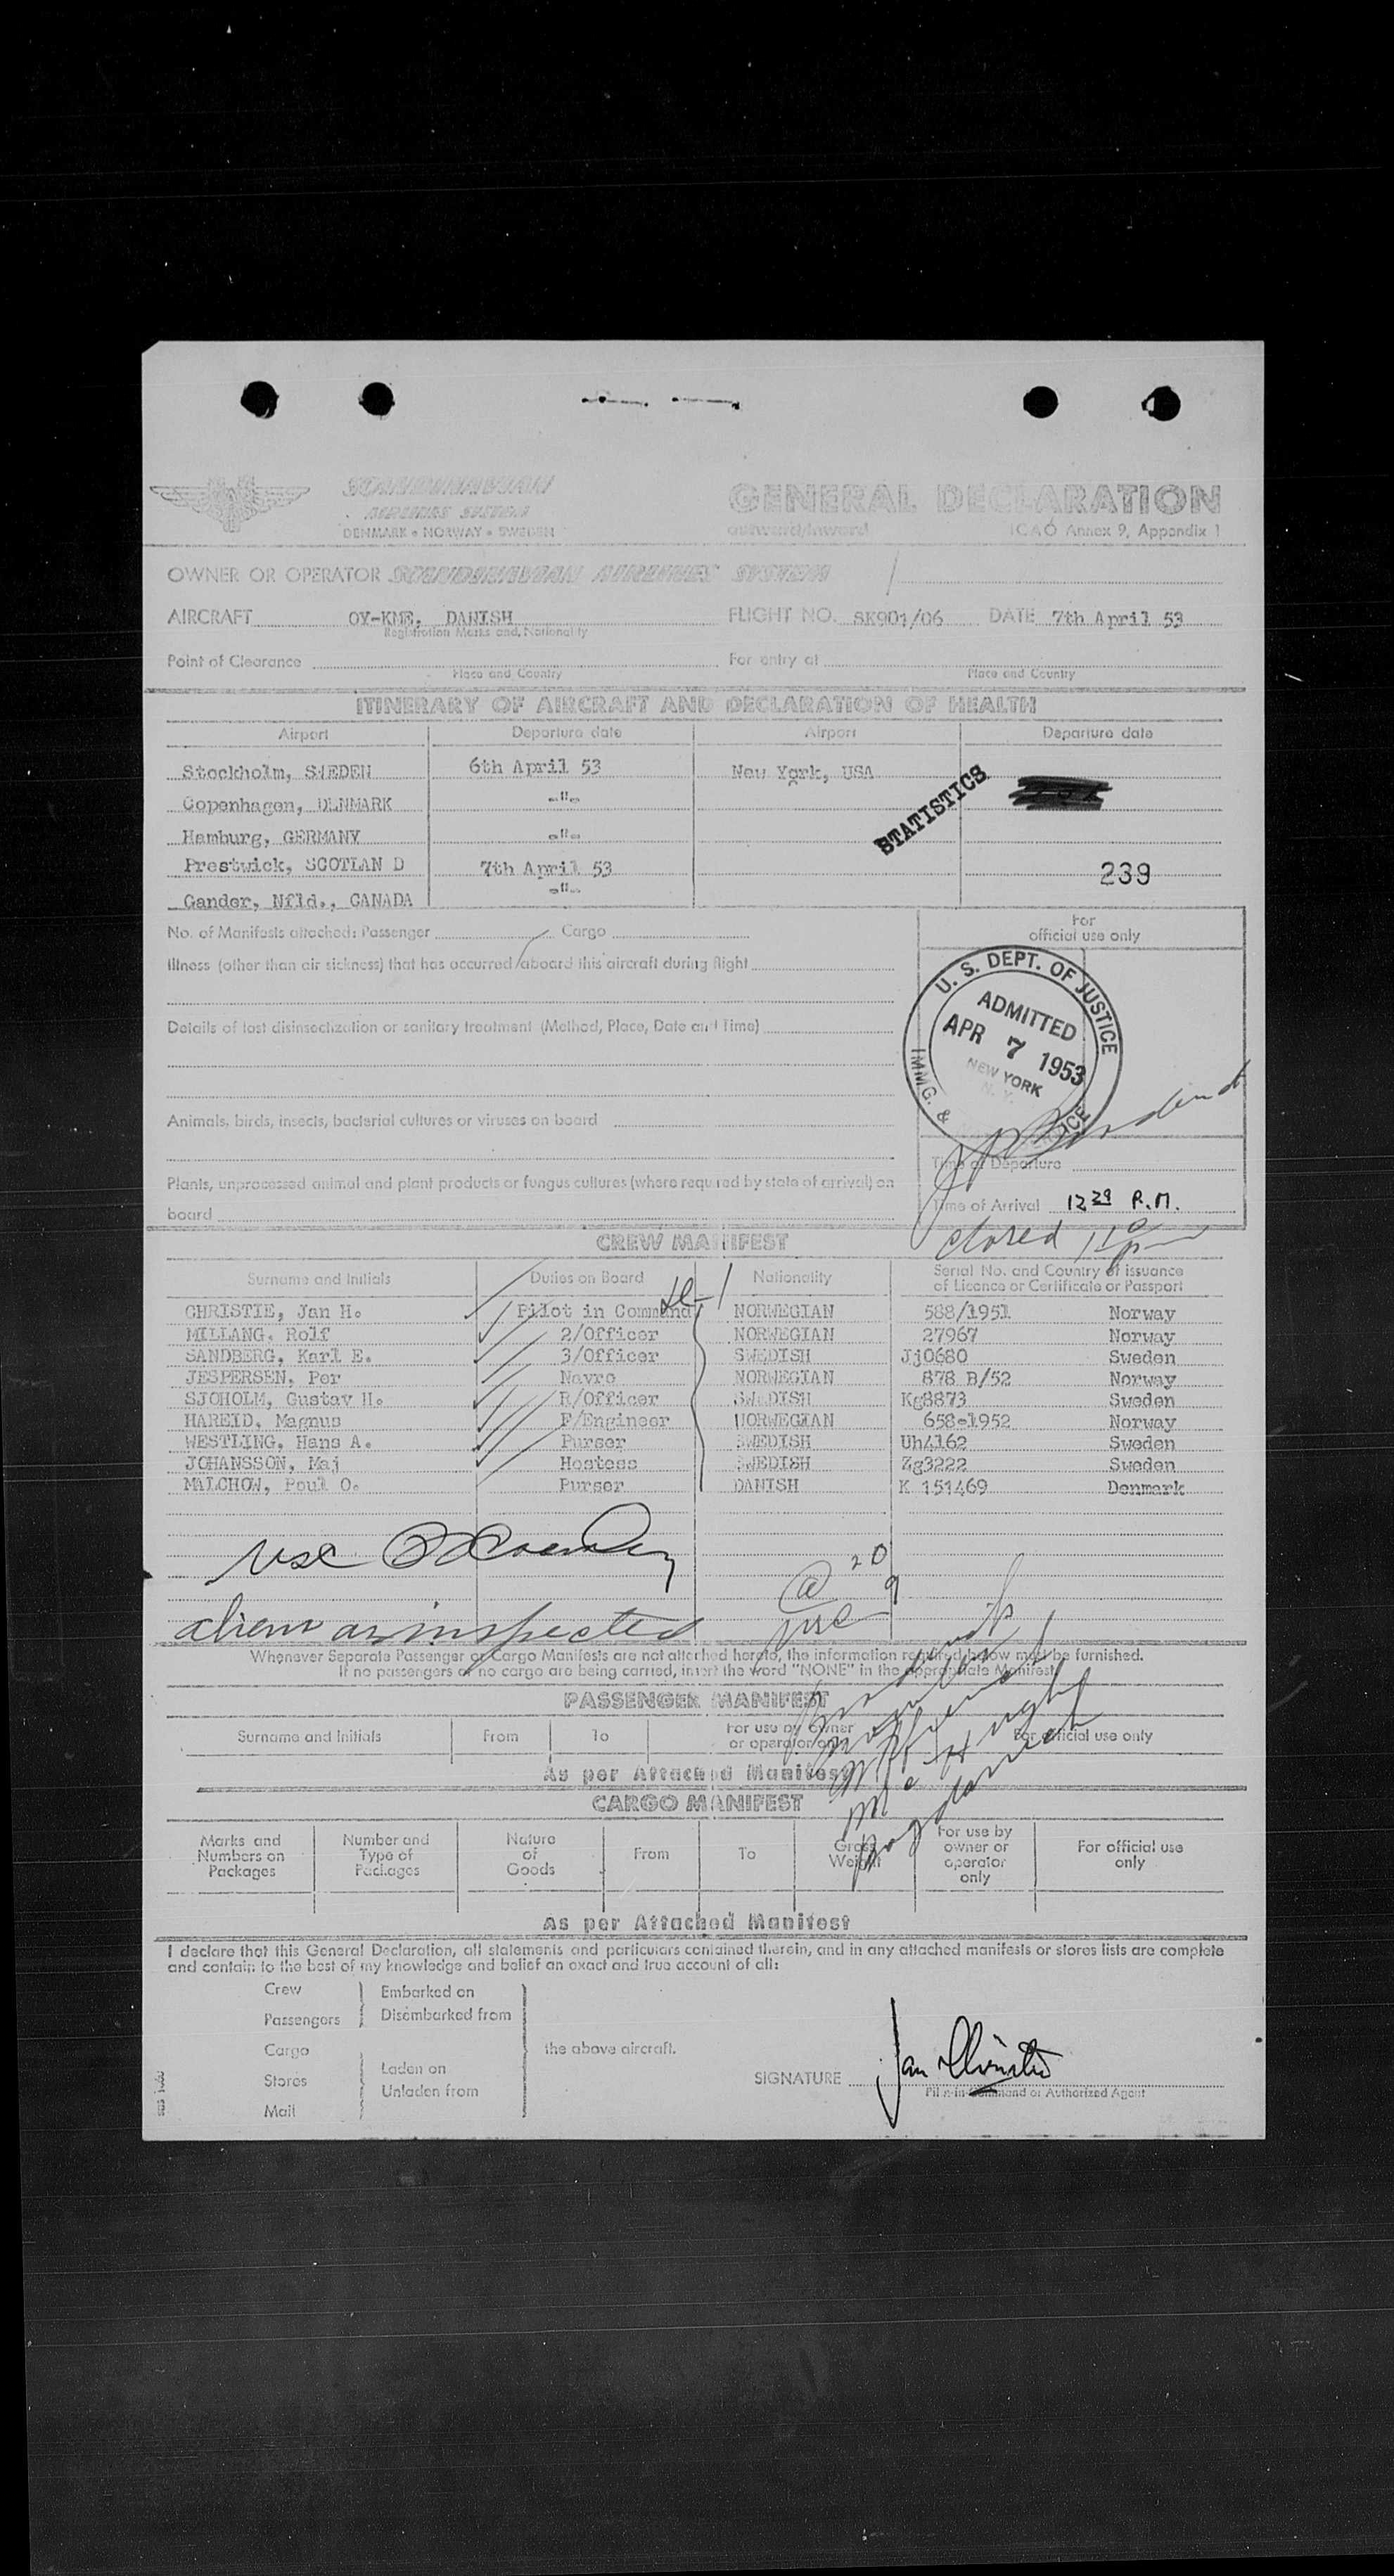 SCANDINAVIAN
AIRLINES SYSTEM
DENMARK • NORWAY • SWEDEN
GENERAL DECLARATION
outward/inward
ICAO Annex 9, Appendix 1
OWNER OR OPERATOR SCANDINAVIAN AIRLINES SYSTEM
AIRCRAFT OY-KME, DANISH FLIGHT NO. SK901/06 DATE 7th April 53
Registration Marks and Nationality
Point of Clearance For entry at
Place and Country Place and Country
ITINERARY OF AIRCRAFT AND DECLARATION OF HEALTH
Airport Departure date Airport Departure date
Stockholm, SWEDEN 6th April 53 New York, USA
STATISTICS
Copenhagen, DENMARK -"-
Hamburg, GERMANY -"-
Prestwick, SCOTLAN D 7th April 53 239
Gander, Nfld., CANADA -"-
No. of Manifests attached: Passenger Cargo
For
official use only
Illness (other than air sickness) that has occurred aboard this aircraft during flight
U. S. DEPT. OF JUSTICE
ADMITTED
APR 7 1953
NEW YORK
N. Y.
IMMG. &
Details of last disinsectization or sanitary treatment (Method, Place, Date and Time)
Animals, birds, insects, bacterial cultures or viruses on board
Time of Departure
Plants, unprocessed animal and plant products or fungus cultures (where required by state of arrival) on
board
Time of Arrival 12 29 P.M.
closed
CREW MANIFEST
Surname and Initials Duties on Board Nationality Serial No. and Country of issuance
of Licence or Certificate or Passport
CHRISTIE, Jan H. Pilot in Command NORWEGIAN 588/1951 Norway
MILLANG, Rolf 2/Officer NORWEGIAN 27967 Norway
SANDBERG, Karl E. 3/Officer SWEDISH Jj0680 Sweden
JESPERSEN, Per Navro NORWEGIAN 878 B/52 Norway
SJOHOLM, Gustav H. R/Officer SWEDISH Kg8873 Sweden
HAREID, Magnus F/Engineer NORWEGIAN 658-1952 Norway
WESTLING, Hans A. Purser SWEDISH Uh4162 Sweden
JOHANSSON, Maj Hostess SWEDISH Zg3222 Sweden
MALCHOW, Poul O. Purser DANISH K 151469 Denmark
usc
20
9
aliens as inspected
Whenever Separate Passenger or Cargo Manifests are not attached hereto, the information required below must be furnished.
If no passengers or no cargo are being carried, insert the word "NONE" in the appropriate Manifest.
PASSENGER MANIFEST
Surname and Initials From To For use by owner
or operator only For official use only
As per Attached Manifest
CARGO MANIFEST
Marks and
Numbers on
Packages Number and
Type of
Packages Nature
of
Goods From To Gross
Weight For use by
owner or
operator
only For official use
only
As per Attached Manifest
I declare that this General Declaration, all statements and particulars contained therein, and in any attached manifests or stores lists are complete
and contain to the best of my knowledge and belief an exact and true account of all:
Crew Embarked on
Passengers Disembarked from
Cargo the above aircraft.
Stores Laden on
Unladen from
Mail
SIGNATURE Jan Christie
Pilot-in-Command or Authorized Agent